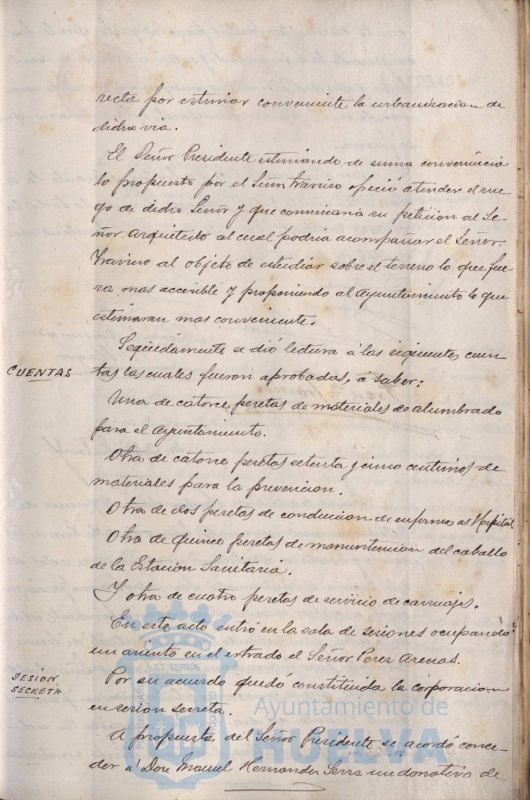 recta por estimar conveniente la urbanizacion de
dicha via.
El Señor Presidente estimando de suma conveniencia
lo propuesto por el Señor Travieso ofreció atender el rue-
go de dicho Señor y que comunicaria su peticion al Se-
ñor Arquitecto al cual podria acompañar el Señor
Travieso al objeto de estudiar sobre el terreno lo que fue-
ra mas accesible y proponiendo al Ayuntamiento lo que
estimaran mas conveniente.
CUENTAS
Seguidamente se dió lectura á las siguientes cuen-
tas las cuales fueron aprobadas, á saber:
Una de catorce pesetas de materiales de alumbrado
para el Ayuntamiento.
Otra de catorce pesetas setenta y cinco centimos de
materiales para la prevencion.
Otra de dos pesetas de conduccion de enfermos al Hospital
Otra de quince pesetas de manuntencion del caballo
de la Estacion Sanitaria.
Y otra de cuatro pesetas de servicio de carruajes.
En este acto entró en la sala de sesiones ocupando
un asiento en el estrado el Señor Perez Arenas.
SESION
SECRETA
Por su acuerdo quedó constituida la corporacion
en sesion secreta.
A propuesta del Señor Presidente se acordó conce-
der á Don Manuel Hernandez Serra un donativo de
ET TERRA
Ayuntamiento de
HUELVA